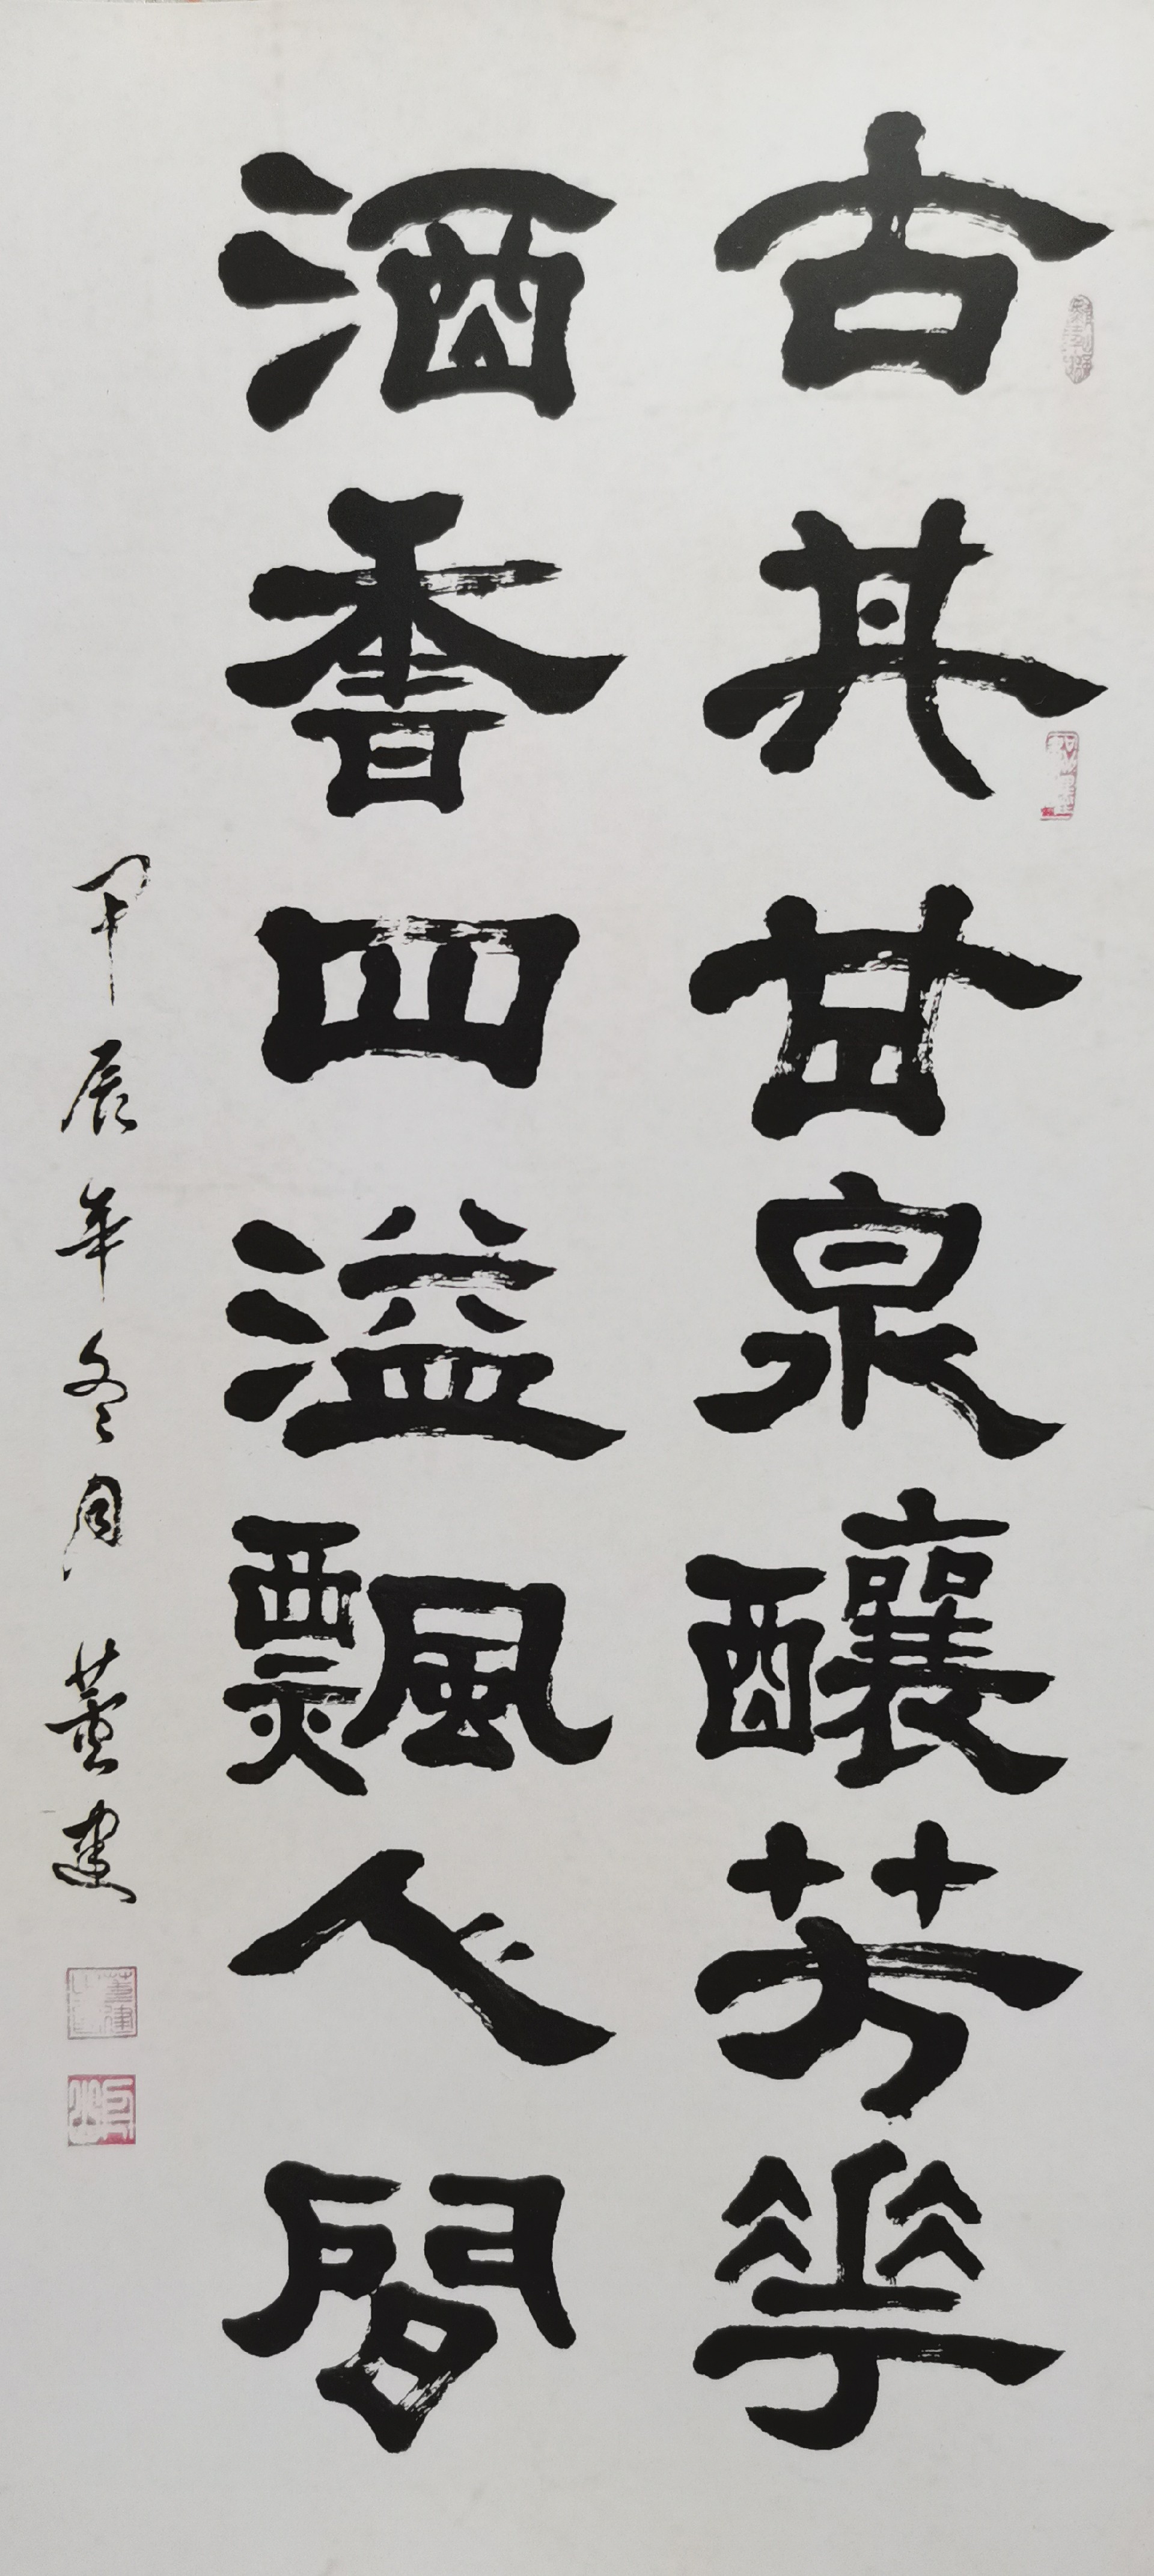 古井甘泉釀芳華
酒香四溢飄人間
甲辰年冬月 董建